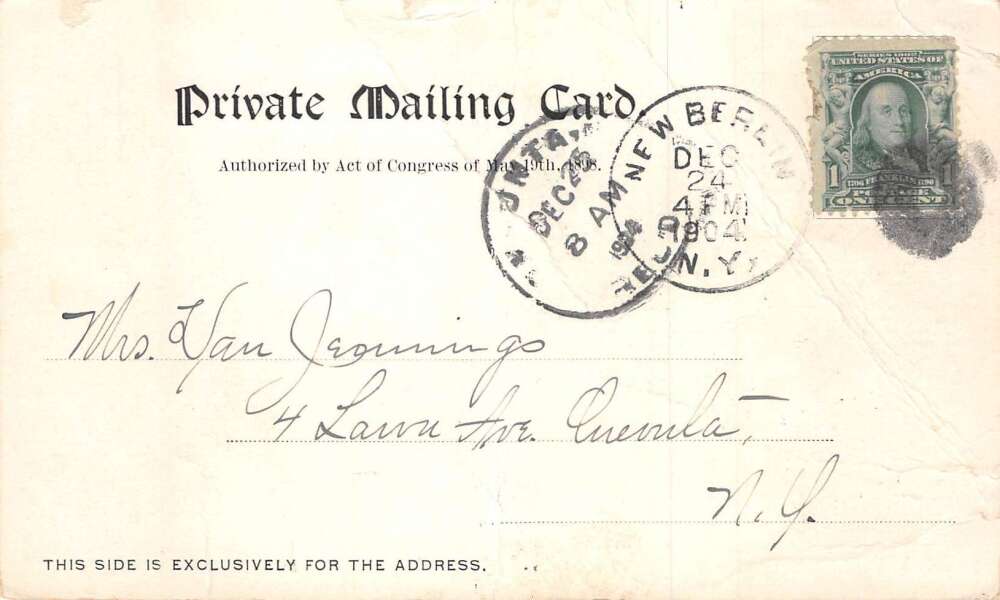 Private Mailing Card
Authorized by Act of Congress of May 19th, 1898.
SERIES 1902
UNITED STATES OF
AMERICA
1 FRANKLIN 1
ONE CENT
NEW BERLIN
DEC
24
4 PM
1904
N.Y.
DEC 25
8 AM
1904
REC'D
Mrs. Van Jennings
4 Lawn Ave.
N.Y.
THIS SIDE IS EXCLUSIVELY FOR THE ADDRESS.